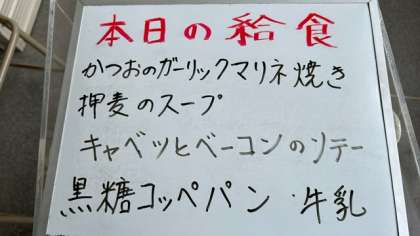 本日の給食
かつおのガーリックマリネ焼き
押麦のスープ
キャベツとベーコンのソテー
黒糖コッペパン・牛乳